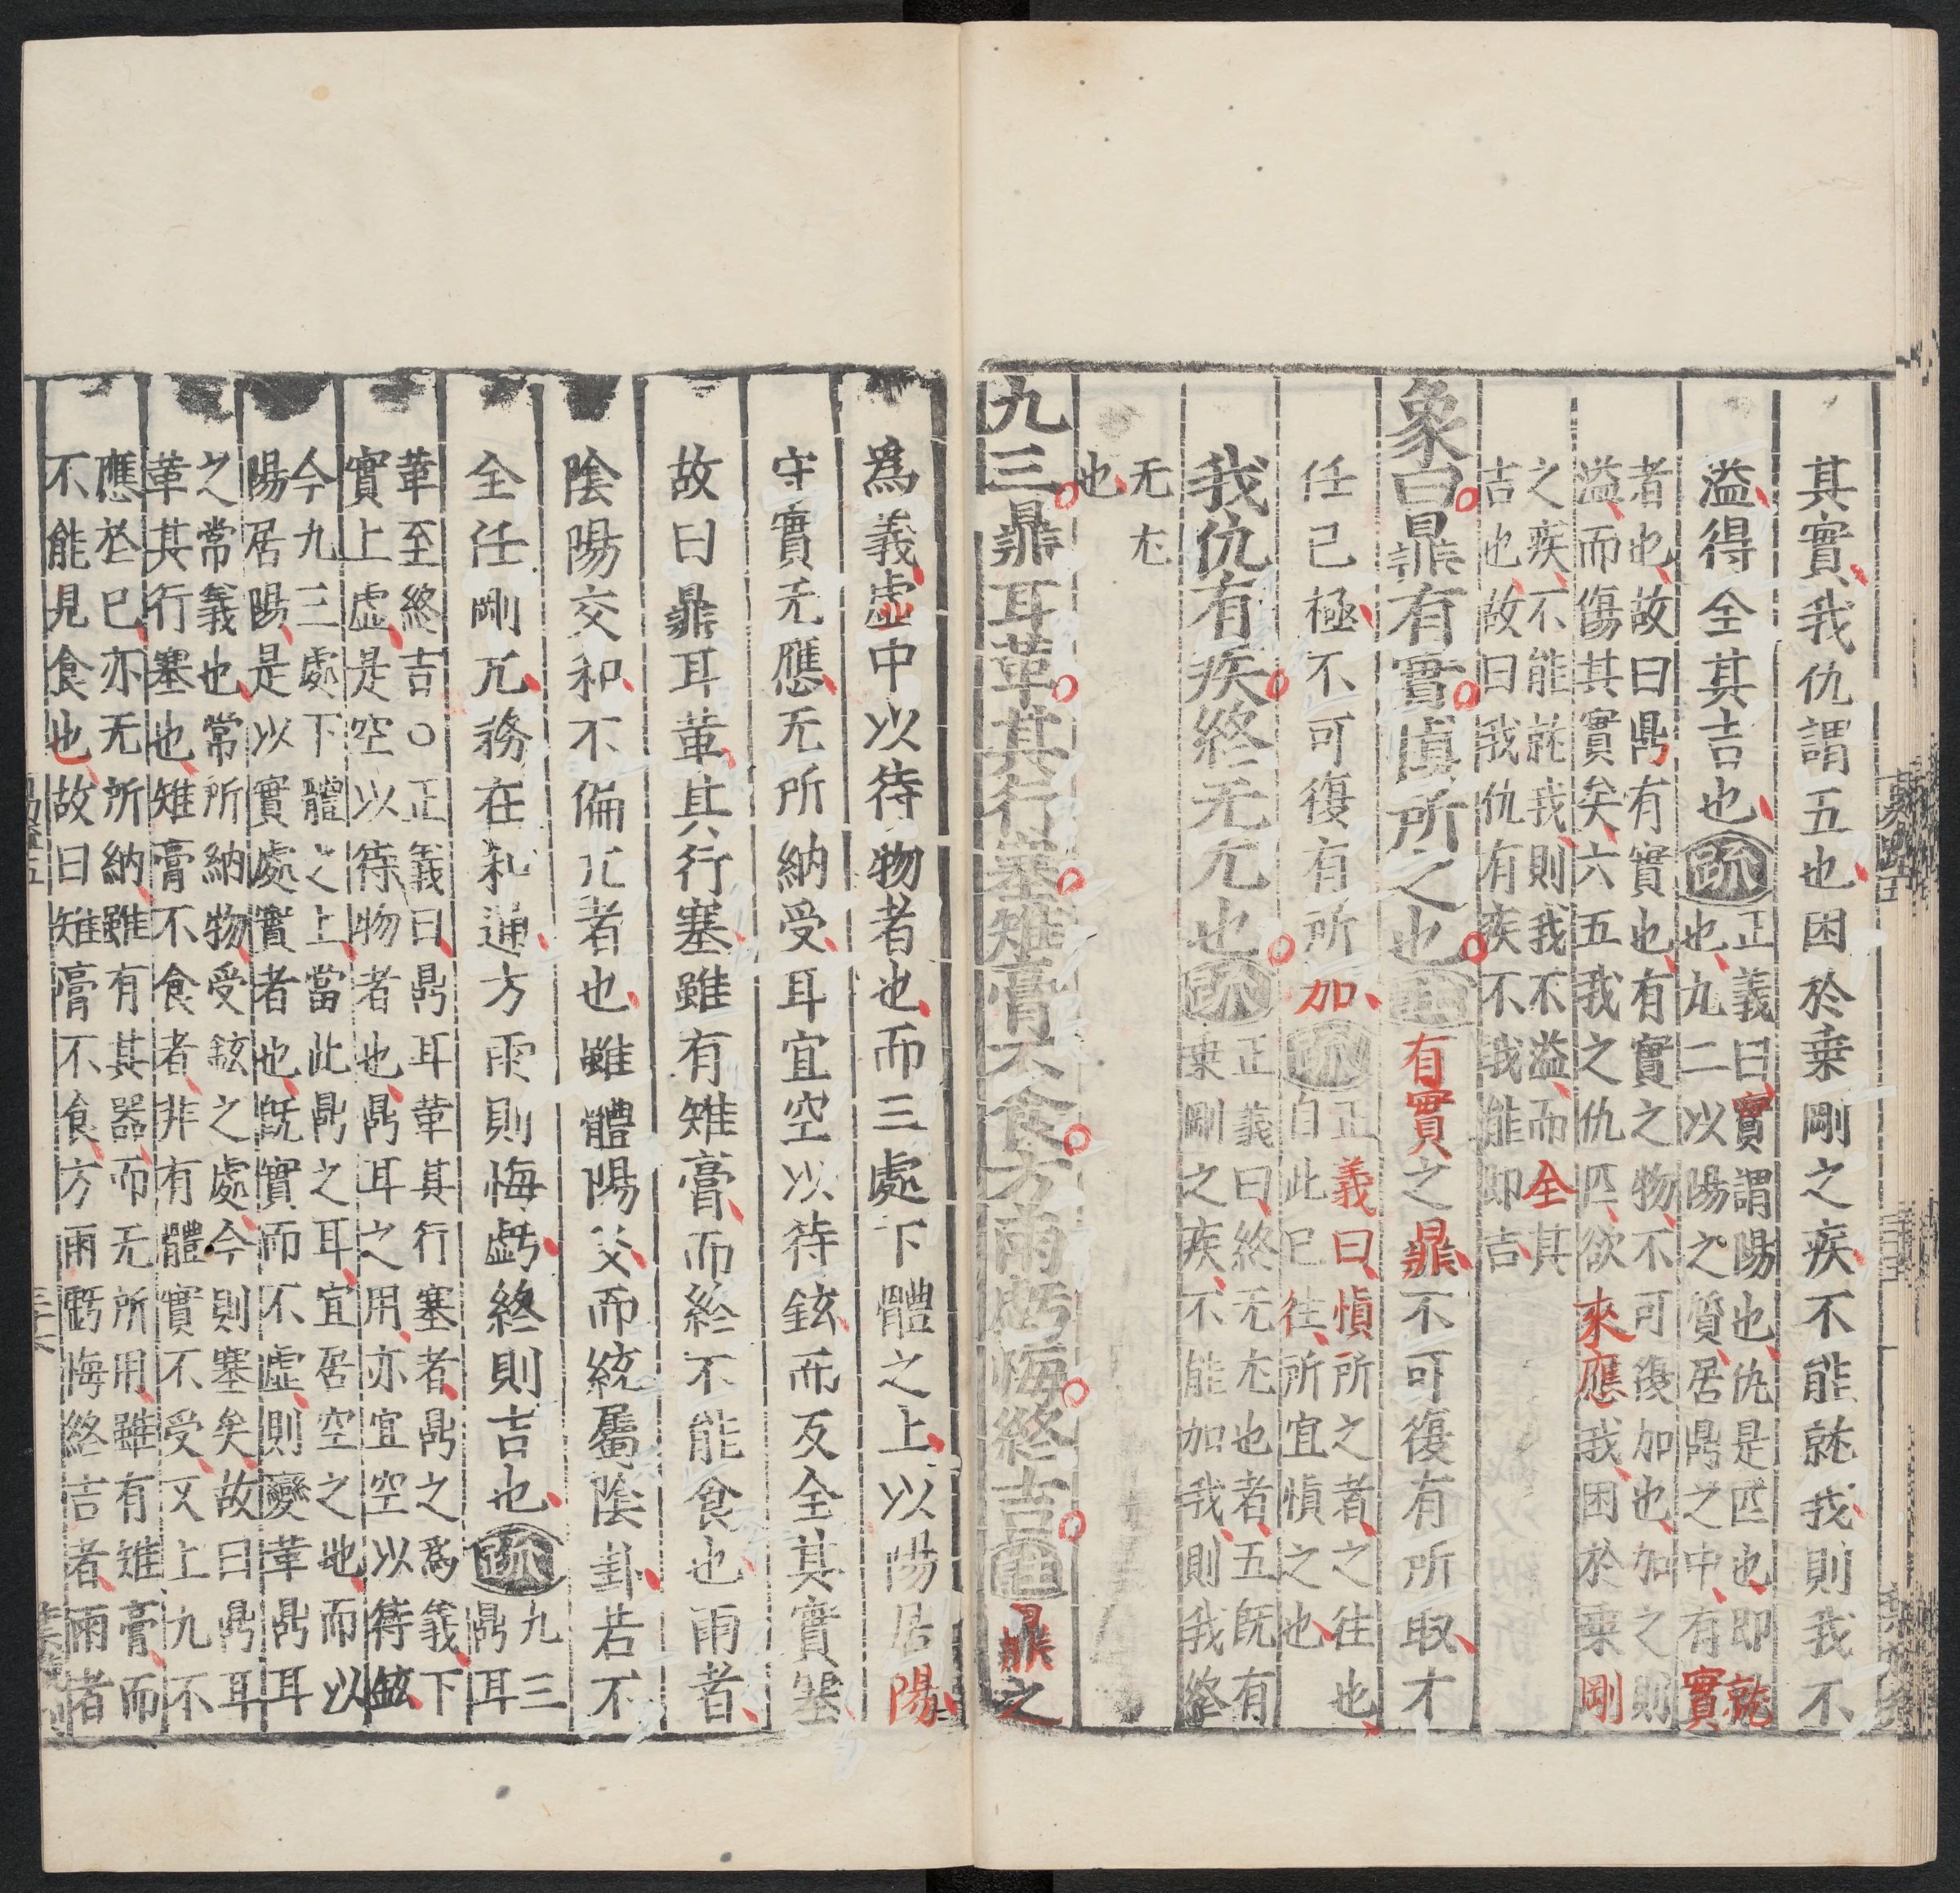 其實我仇謂五也困於乗剛之疾不能就我則我不
溢得全其吉也疏正義曰實謂陽也仇是匹也即就
也九二以陽之質居鼎之中有實
者也故曰鼎有實也有實之物不可復加也加之則
溢而傷其實矣六五我之仇匹欲來應我困於乗剛
之疾不能就我則我不溢而全其
吉也故曰我仇有疾不我能即吉
象曰鼎有實慎所之也注有實之鼎不可復有所取才
任已極不可復有所加疏正義曰慎所之者之往也
自此已往所宜慎之也
我仇有疾終无尤也疏正義曰終无尤也者五既有
乗剛之疾不能加我則我終
无尤
也
九三鼎耳革其行塞雉膏不食方雨虧悔終吉注鼎之
爲義虛中以待物者也而三處下體之上以陽居陽
守實无應无所納受耳宜空以待鉉而反全其實塞
故曰鼎耳革其行塞雖有雉膏而終不能食也雨者
陰陽交和不偏亢者也雖體陽爻而統屬陰卦若不
全任剛亢務在和通方雨則悔虧終則吉也疏九三
鼎耳
革至終吉○正義曰鼎耳革其行塞者鼎之爲義下
實上虛是空以待物者也鼎耳之用亦宜空以待鉉
今九三處下體之上當此鼎之耳宜居空之地而以
陽居陽是以實處實者也既實而不虛則變革鼎耳
之常義也常所納物受鉉之處今則塞矣故曰鼎耳
革其行塞也雉膏不食者非有體實不受又上九不
應於已亦无所納雖有其器而无所用雖有雉膏而
不能見食也故曰雉膏不食方雨虧悔終吉者雨者